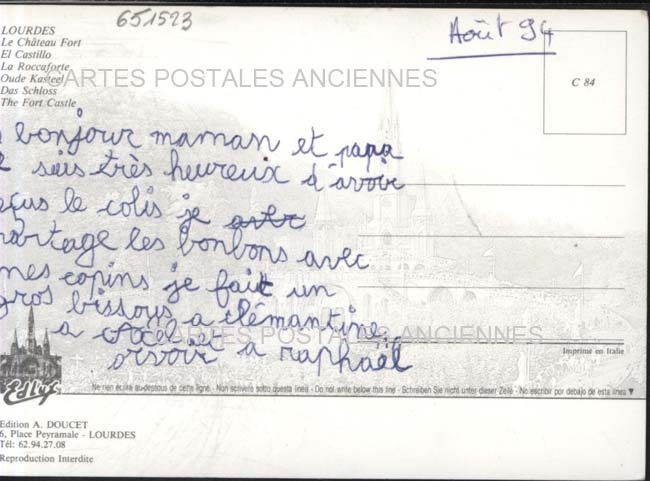 651523
Août 94
LOURDES
Le Château Fort
El Castillo
La Roccaforte
Oude Kasteel
Das Schloss
The Fort Castle
C 84
CARTES POSTALES ANCIENNES
bonjour maman et papa
suis très heureux d'avoir
eçus le colis je
partage les bonbons avec
mes copins je fait un
gros bissous a clémantine
a et
orvoir a raphaël
CARTES POSTALES ANCIENNES
Imprimé en Italie
Edlys
Ne rien écrire au-dessous de cette ligne - Non scrivere sotto questa linea - Do not write below this line - Schreiben Sie nicht unter dieser Zeile - No escribir por debajo de esta linea ▼
Edition A. DOUCET
6, Place Peyramale - LOURDES
Tél: 62.94.27.08
Reproduction Interdite